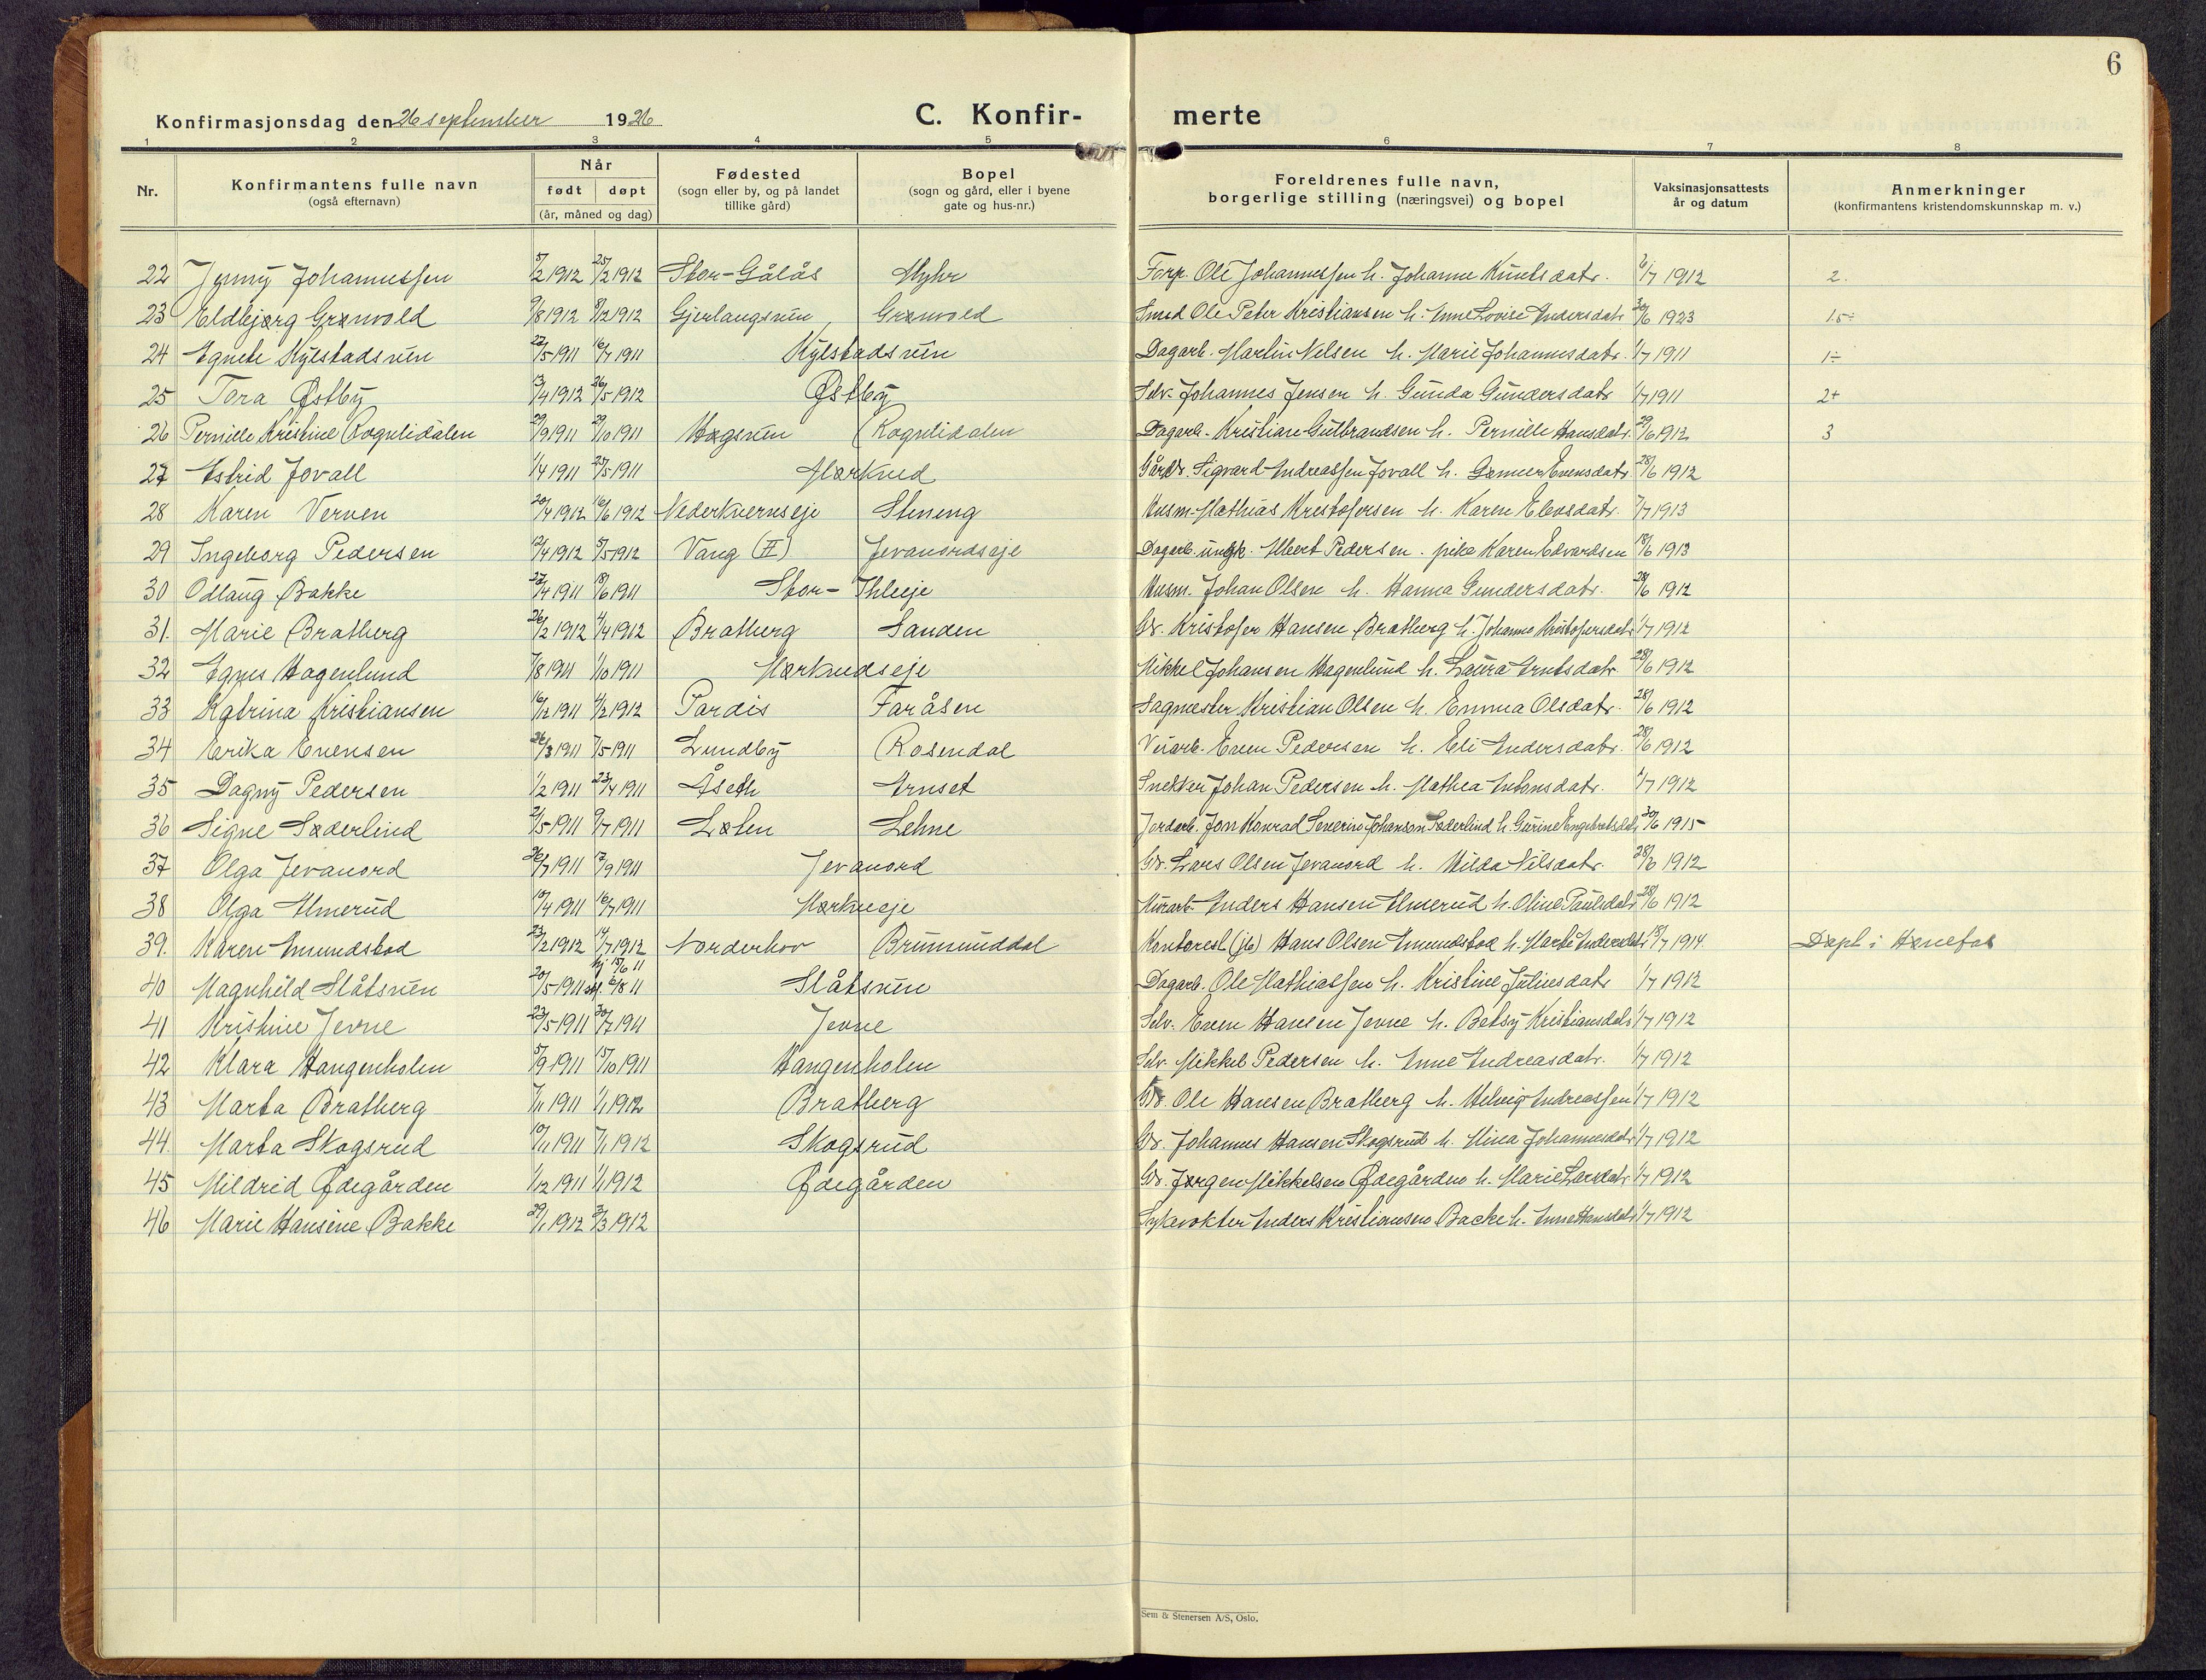 6
Konfirmasjonsdag den 26 september 1926 C. Konfir- merte
1 2 3 4 5 6 7 8
Nr. Konfirmantens fulle navn (også efternavn) Når født døpt (år, måned og dag) Fødested (sogn eller by, og på landet tillike gård) Bopel (sogn og gård, eller i byene gate og hus-nr.) Foreldrenes fulle navn, borgerlige stilling (næringsvei) og bopel Vaksinasjonsattests år og datum Anmerkninger (konfirmantens kristendomskunnskap m. v.)
22 Jenny Johannessen 5/2 1912 25/2 1912 Stor-Gålås Myhr Torp. Ole Johannessen h. Johanne Knutsdatr. 6/7 1912 2.
23 Eldbjørg Grønvold 9/8 1912 8/12 1912 Gjerlaugsrün Grønvold Smed Ole Peter Kristiansen h. Anne Lovise Andersdatr 30/6 1923 1.5÷
24 Agnete Kylstadsrün 22/5 1911 16/7 1911 Kylstadsrün Dagarb. Martin Nilsen h. Marie Johannesdatr. 1/7 1911 1÷
25 Tora Østby 13/4 1912 26/5 1912 Østby Selv. Johannes Jensen h. Gunda Gundersdatr 1/7 1911 2+
26 Pernille Kristine Rognlidalen 29/9 1911 29/10 1911 Hagsrün Rognlidalen Dagarb. Kristian Gulbrandsen h. Pernille Hansdatr. 29/6 1912 3
27 Astrid Jovall 1/4 1911 25/5 1911 Mørkved Gårdbr. Sigvard Andreassen Jovall h. Evensdatr. 28/6 1912
28 Karen Verven 20/4 1912 16/6 1912 Nederkvernseje Steneng Husm. Mathias Kristofersen h. Karen Elevsdatr. 7/7 1913
29 Ingeborg Pedersen 12/4 1912 5/5 1912 Vang (H) Jevanordseje Dagarb. ungk. Albert Pedersen. pike Karen Edvardsen 18/6 1913
30 Odlaug Bakke 27/4 1911 18/6 1911 Stor-Ihleeje Husm. Johan Olsen h. Hanna Gundersdatr. 28/6 1912
31. Marie Bratberg 26/2 1912 4/4 1912 Bratberg Sanden Gbr. Kristofer Hansen Bratberg h. Johanne Kristofersdatr 1/7 1912
32 Agnes Hagenlund 7/8 1911 1/10 1911 Mørkvedseje Mikkel Johansen Hagenlund h. Laura Arntsdatr 28/6 1912
33 Katrina Kristiansen 16/12 1911 4/2 1912 Pardis Faråsen Sagmester Kristian Olsen h. Emma Olsdatr. 28/6 1912
34 Erika Evensen 26/3 1911 7/5 1911 Lundby Rosendal Veiarb. Even Pedersen h. Eli Andersdatr. 28/6 1912
35 Dagny Pedersen 1/2 1911 23/4 1911 Åseth Arnset Snekker Johan Pedersen h. Mathea Antonsdatr. 1/7 1912
36 Signe Søderlind 21/5 1911 9/7 1911 Løten Lehne Jordarb. Jon Konrad Severin Johanson Søderlind h. Gurine Engebretsdatr 30/6 1915
37 Olga Jevanord 26/7 1911 17/9 1911 Jevanord Gbr. Lars Olsen Jevanord h. Hilda Nilsdatr. 28/6 1912
38 Olga Almerud 10/4 1911 16/7 1911 Mørkveeje Murarb. Anders Hansen Almerud h. Oline Paulsdatr 28/6 1912
39. Karen Amundstad 23/2 1912 14/7 1912 Norderhov Brummunddal Kontorest (jb) Hans Olsen Amundstad h. Marte Andersdatr 18/7 1914 Døpt i Hønefos
40 Magnhild Slåtsrün 20/5 1911 hj 15/6 11 6/8 11 Slåtsrün Dagarb. Ole Mathiassen h. Kristine Juliesdatr 1/7 1912
41 Kristine Jevne 23/5 1911 30/7 1911 Jevne Selv. Even Hansen Jevne h. Betsy Kristiansdatr 1/7 1912
42 Klara Haugenholen 5/9 1911 15/10 1911 Haugenholen Selv. Mikkel Pedersen h. Anne Andreasdatr. 1/7 1912
43 Marta Bratberg 7/11 1911 1/1 1912 Bratberg Gbr. Ole Hansen Bratberg h. Helvig Andreassen 1/7 1912
44. Marta Skogsrud 10/11 1911 7/1 1912 Skogsrud Gbr. Johannes Hansen Skogsrud h. Mina Johannesdatr 1/7 1912
45 Mildrid Ødegården 1/12 1911 1/1 1912 Ødegården Gbr. Jørgen Mikkelsen Ødegården h. Marie Larsdatr 1/7 1912
46 Marie Hansine Bakke 29/1 1912 3/3 1912 Anders Kristiansen Backe h. Anne Hansdatr 1/7 1912
Sem & Stenersen A/S, Oslo.